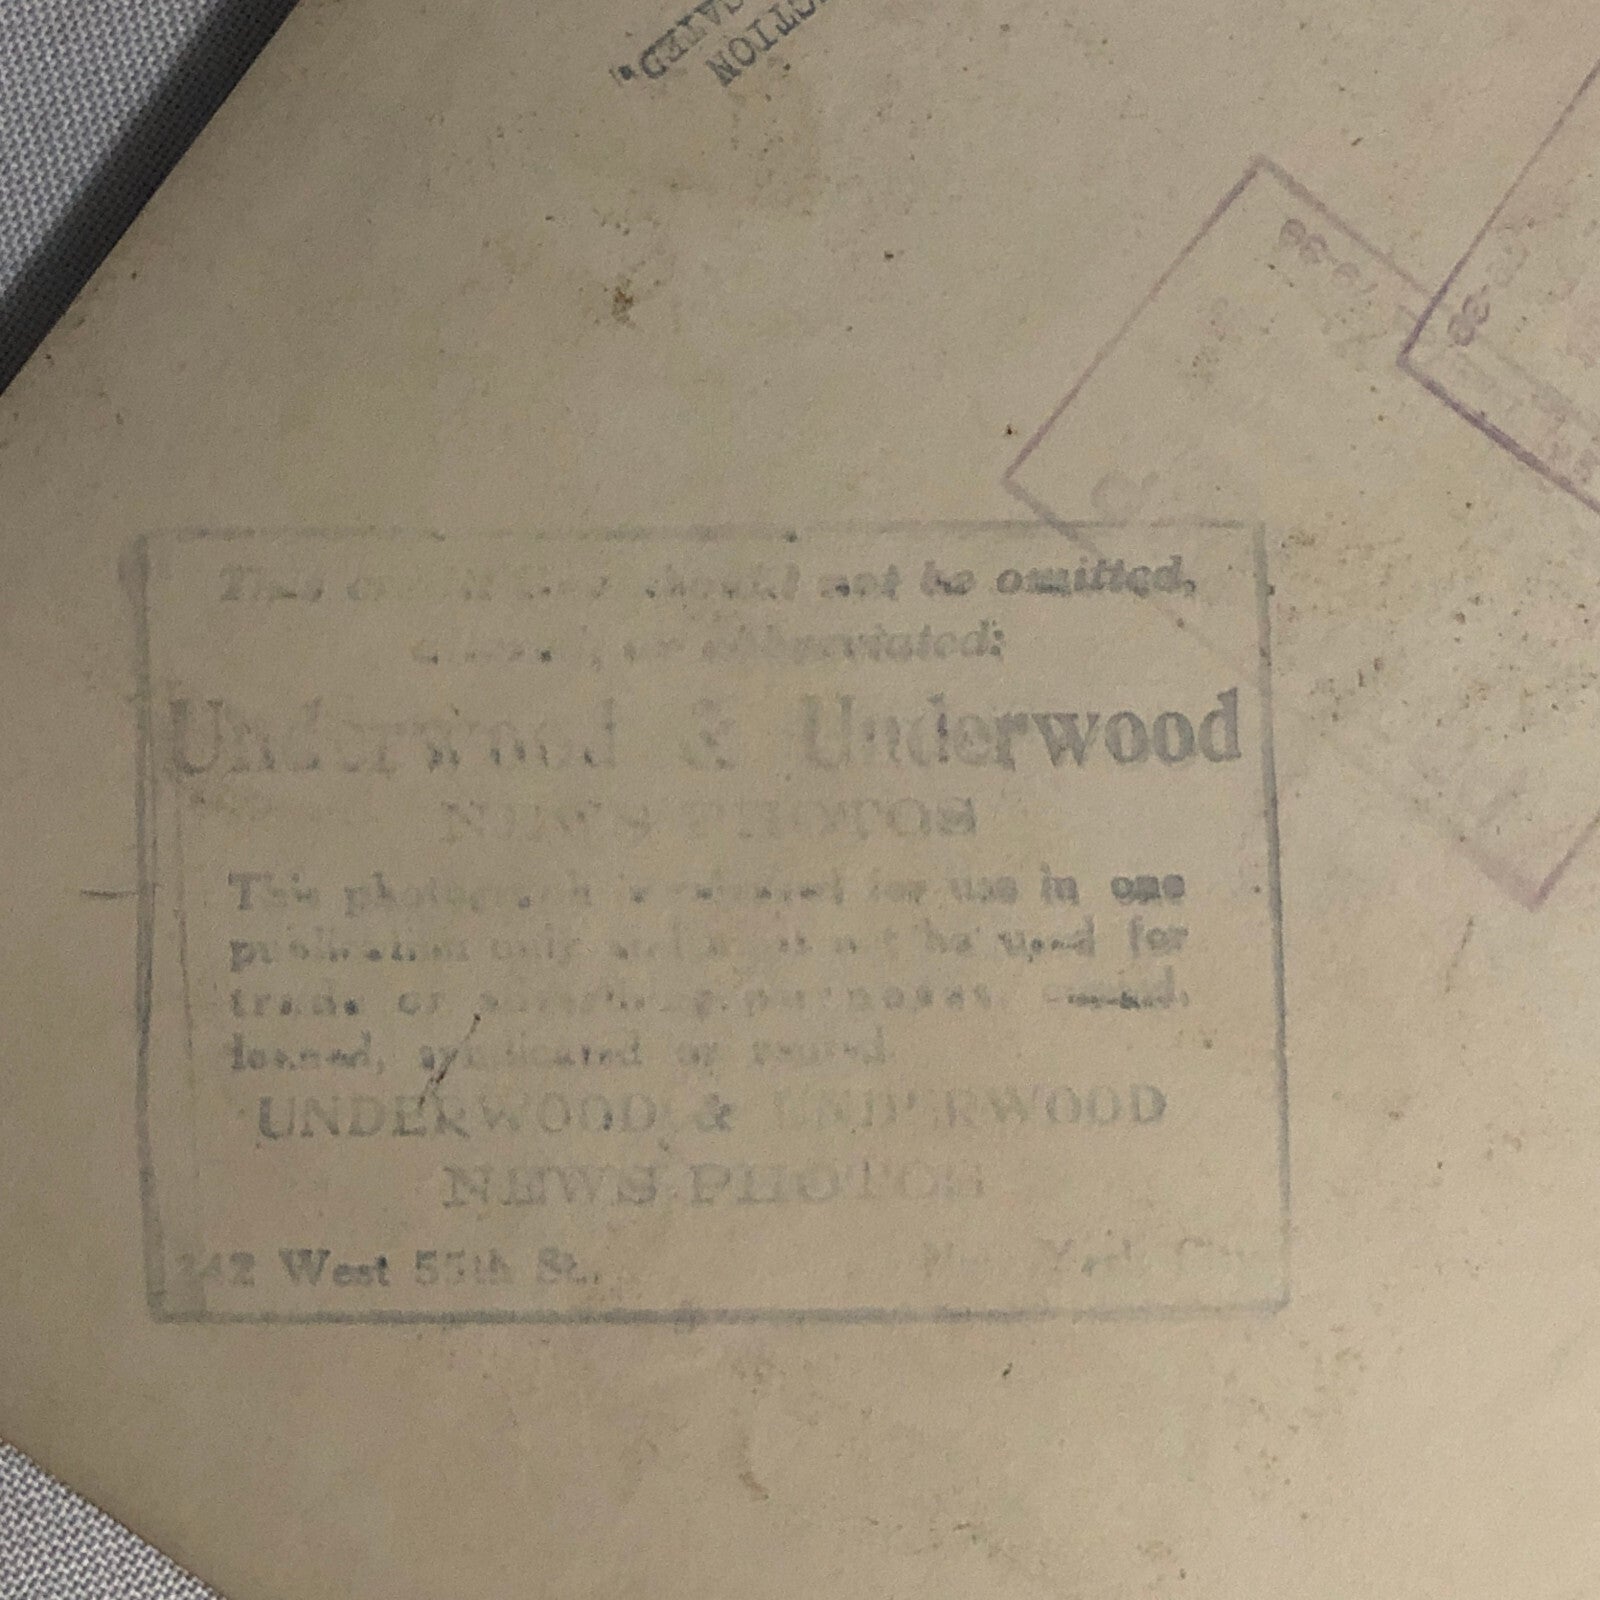 CTION
GATED.
This credit line should not be omitted,
altered, or abbreviated:
Underwood & Underwood
NEWS PHOTOS
This photograph is released for use in one
publication only and must not be used for
trade or advertising purposes,
loaned, syndicated or rented
UNDERWOOD & UNDERWOOD
NEWS PHOTOS
242 West 55th St. New York City